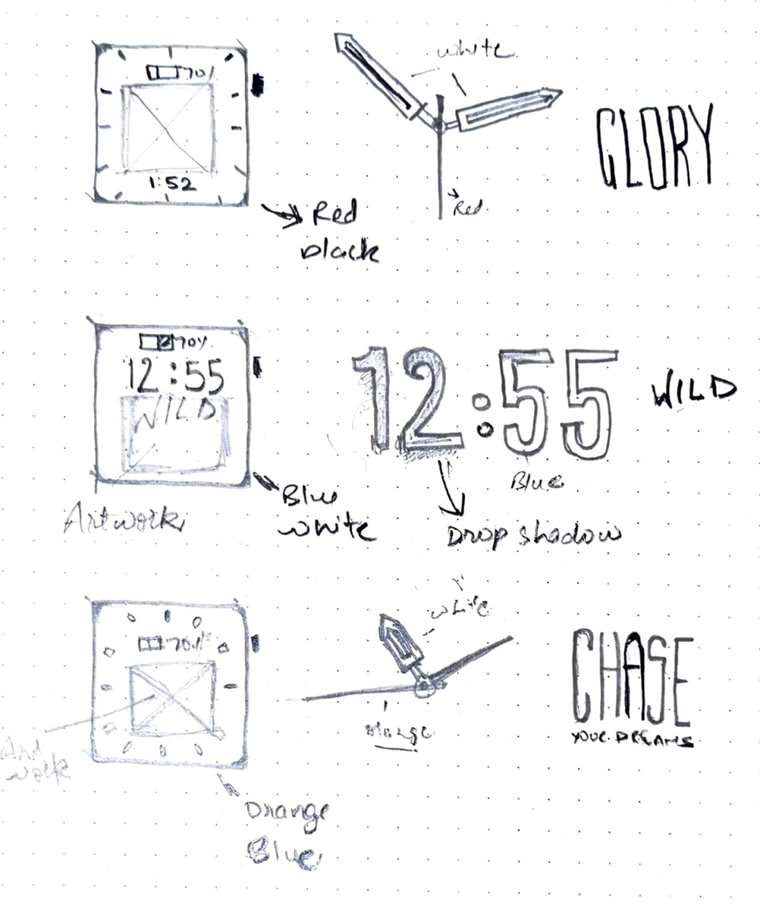 70%
1:52
White
Red
GLORY
Red
black
70%
12:55
WILD
12:55
Blue
Drop shadow
WILD
Artwork
Blue
White
70%
White
orange
CHASE
YOUR DREAMS
Art
work
Orange
Blue